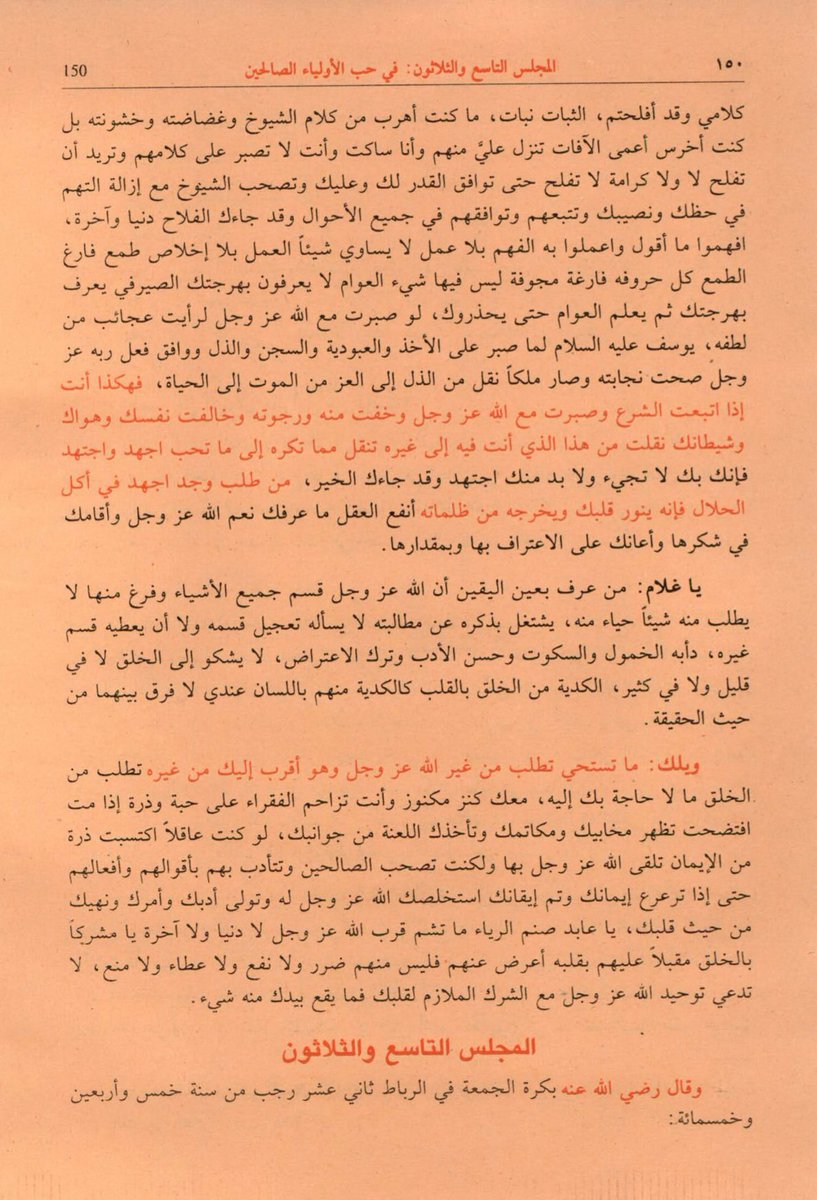 ١٥٠ المجلس التاسع والثلاثون: في حب الأولياء الصالحين 150
كلامي وقد أفلحتم، الثبات نبات، ما كنت أهرب من كلام الشيوخ وغضاضته وخشونته بل
كنت أخرس أعمى الآفات تنزل عليَّ منهم وأنا ساكت وأنت لا تصبر على كلامهم وتريد أن
تفلح لا ولا كرامة لا تفلح حتى توافق القدر لك وعليك وتصحب الشيوخ مع إزالة التهم
في حظك ونصيبك وتتبعهم وتوافقهم في جميع الأحوال وقد جاءك الفلاح دنيا وآخرة،
افهموا ما أقول واعملوا به الفهم بلا عمل لا يساوي شيئاً العمل بلا إخلاص طمع فارغ
الطمع كل حروفه فارغة مجوفة ليس فيها شيء العوام لا يعرفون بهرجتك الصيرفي يعرف
بهرجتك ثم يعلم العوام حتى يحذروك، لو صبرت مع الله عز وجل لرأيت عجائب من
لطفه، يوسف عليه السلام لما صبر على الأخذ والعبودية والسجن والذل ووافق فعل ربه عز
وجل صحت نجابته وصار ملكاً نقل من الذل إلى العز من الموت إلى الحياة، فهكذا أنت
إذا اتبعت الشرع وصبرت مع الله عز وجل وخفت منه ورجوته وخالفت نفسك وهواك
وشيطانك نقلت من هذا الذي أنت فيه إلى غيره تنقل مما تكره إلى ما تحب اجهد واجتهد
فإنك بك لا تجيء ولا بد منك اجتهد وقد جاءك الخير، من طلب وجد اجهد في أكل
الحلال فإنه ينور قلبك ويخرجه من ظلماته أنفع العقل ما عرفك نعم الله عز وجل وأقامك
في شكرها وأعانك على الاعتراف بها وبمقدارها.
يا غلام: من عرف بعين اليقين أن الله عز وجل قسم جميع الأشياء وفرغ منها لا
يطلب منه شيئاً حياء منه، يشتغل بذكره عن مطالبته لا يسأله تعجيل قسمه ولا أن يعطيه قسم
غيره، دأبه الخمول والسكوت وحسن الأدب وترك الاعتراض، لا يشكو إلى الخلق لا في
قليل ولا في كثير، الكدية من الخلق بالقلب كالكدية منهم باللسان عندي لا فرق بينهما من
حيث الحقيقة.
ويلك: ما تستحي تطلب من غير الله عز وجل وهو أقرب إليك من غيره تطلب من
الخلق ما لا حاجة بك إليه، معك كنز مكنوز وأنت تزاحم الفقراء على حبة وذرة إذا مت
افتضحت تظهر مخابيك ومكاتمك وتأخذك اللعنة من جوانبك، لو كنت عاقلاً اكتسبت ذرة
من الإيمان تلقى الله عز وجل بها ولكنت تصحب الصالحين وتتأدب بهم بأقوالهم وأفعالهم
حتى إذا ترعرع إيمانك وتم إيقانك استخلصك الله عز وجل له وتولى أدبك وأمرك ونهيك
من حيث قلبك، يا عابد صنم الرياء ما تشم قرب الله عز وجل لا دنيا ولا آخرة يا مشركاً
بالخلق مقبلاً عليهم بقلبه أعرض عنهم فليس منهم ضرر ولا نفع ولا عطاء ولا منع، لا
تدعي توحيد الله عز وجل مع الشرك الملازم لقلبك فما يقع بيدك منه شيء.
المجلس التاسع والثلاثون
وقال رضي الله عنه بكرة الجمعة في الرباط ثاني عشر رجب من سنة خمس وأربعين
وخمسمائة: